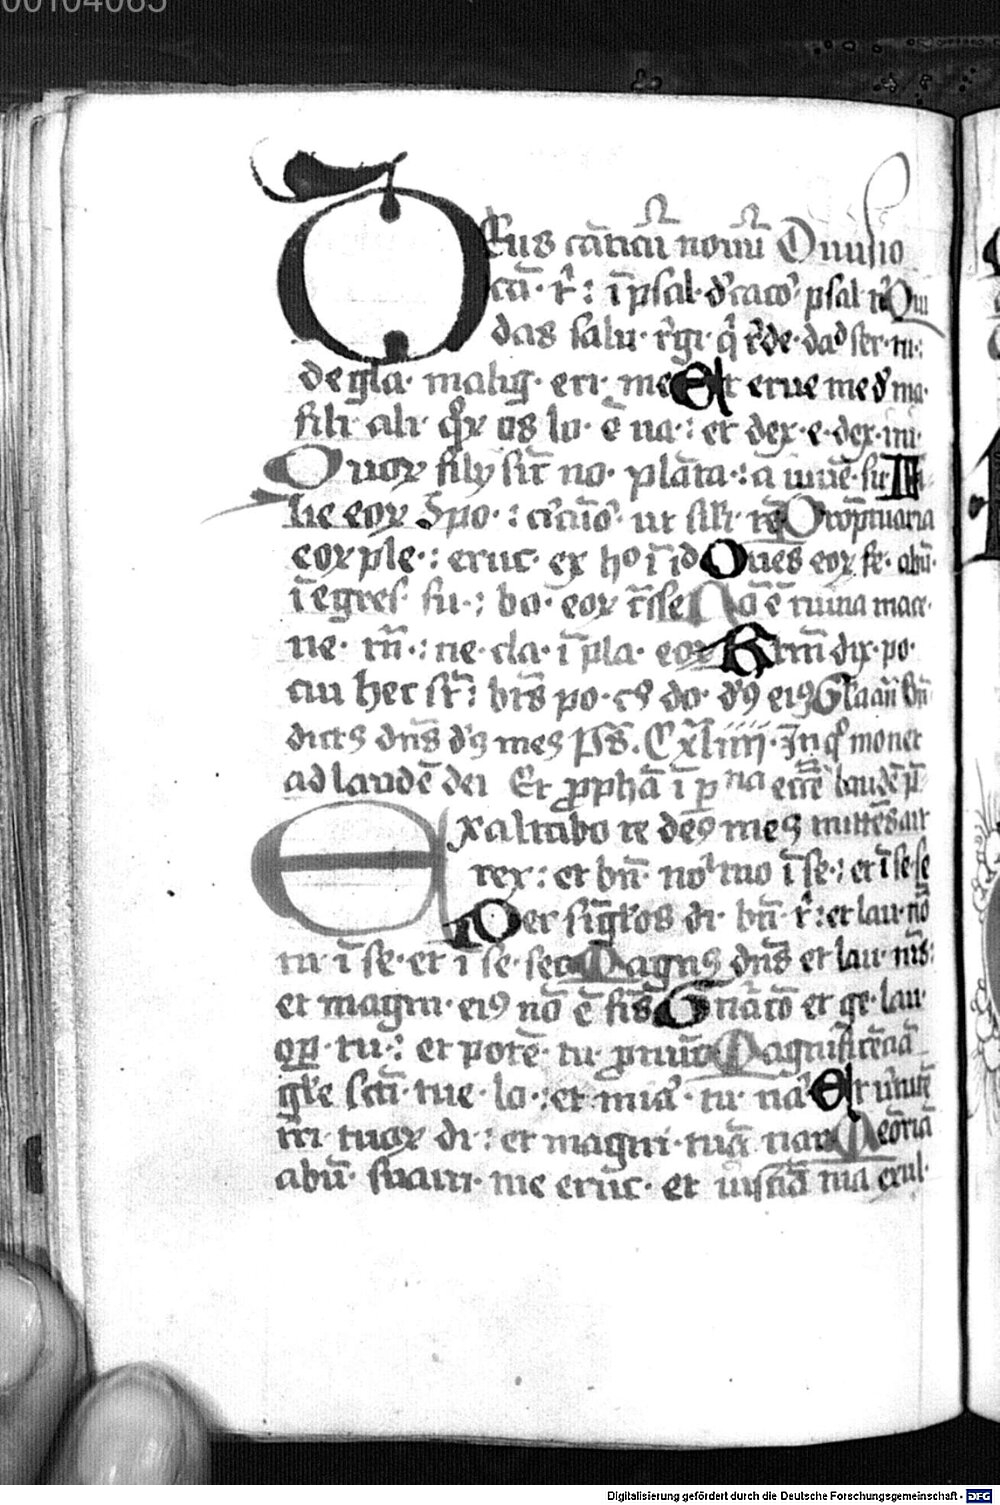 00104065
Deus cāticū nouū Diuisio
cā· t̄: ī psal· d'caco' psal t' Qui
das salu· r'gi· q̄ r'de· dad ser· tu:
de gla· malig· eri· me Et erue me d' ma·
fili· ali· qꝛ os lo· ē ua·: et dex· e· dex· ini·
Quoꝝ filij sūt no· plāta·: a iuuē· su Fi
lie eoꝝ 9po·: c'cūo' ut sili· tē Proptuaria
eoꝝ ple·: eruc· ex ho ī id Oues eoꝝ fe· abū·
ī egres· su·: bo· eoꝝ c̄sse Nō ē ruina mace·
ne· trā·: ne· cla· ī pla· eoꝝ Btm̄ dix· po·
cui hec st̄: bt̄s po· c9 do· d'9 ei9 Gla
dicts dn̄s d'9 me9 Ps̄· Cxliiii· In q° monet
ad laudē dei Et ꝓpphā ī
Exaltabo te de9 me9
rex: et bn̄· no' tuo ī se·: et ī se· se
Per sīglos di· bn̄· t̄: et lau· nō
tu· ī se· et ī se· sec Magn9 dn̄s et lau· nis:
et magni· ei9 nō ē fis Gn̄acō et ge· lau·
oꝑ· tu·: et potē· tu· ꝓnūc Magnificēciā
gle sctī· tue· lo·: et mia· tu· na' Et uirtutē
t'ri· tuoꝝ di·: et magni· tuā nar Meōriā
abū· suaui· me eruc· et iusciā tua exul·
Digitalisierung gefördert durch die Deutsche Forschungsgemeinschaft - DFG